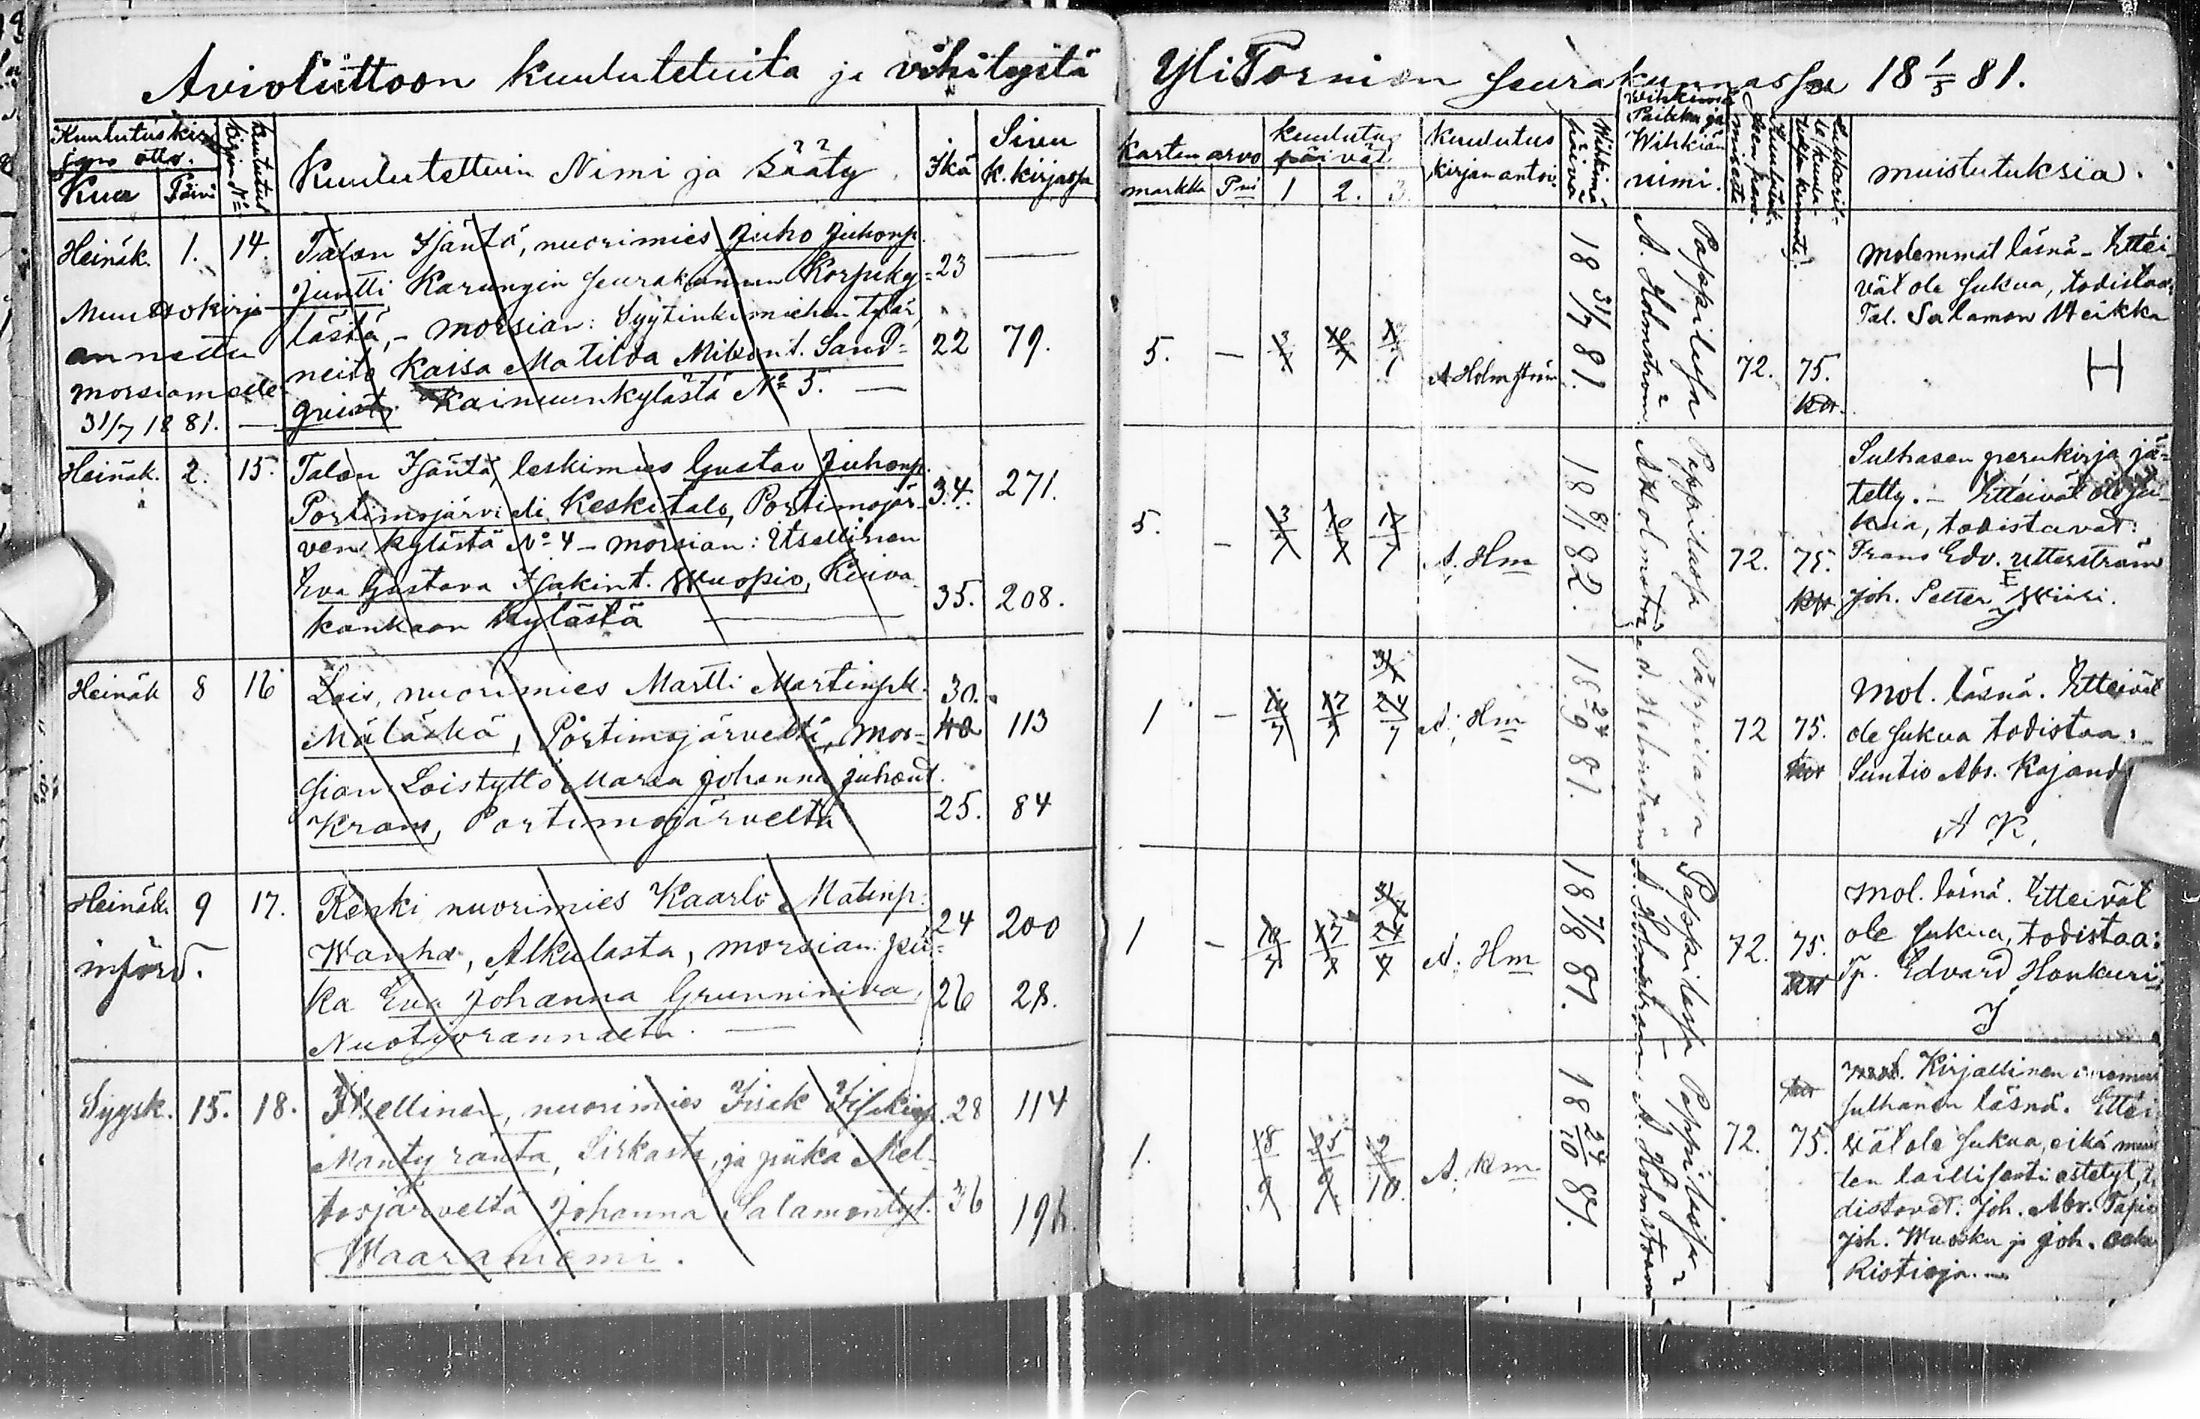 Avioliittoon kuulutetuita ja vihityitä
Kuulutuskir
jan otto.
Kuu
Päivä
Kuulutus
kirjan No
Kuulutettuin Nimi ja Sääty
Ikä
Sivu
k. kirjassa
Heinäk. 1. 14.
Talon Isäntä, nuorimies Juho Juhonp.
Juntti Karungin seurakunnan Korpiky- 23 —
lästä, - morsian: Syytinkimiehen tytär,
neito Kaisa Matilda Mikont. Sand- 22 79.
qvist, Kainuunkylästä No 5. —
Muuttokirja
annettu
morsiamelle
31/7 1881. —
Heinäk. 2. 15.
Talon Isäntä, leskimies Gustav Juhonp.
Portimojärvi eli Keskitalo, Portimojär- 34. 271.
ven kylästä No 4 - morsian: Itsellinen
Eva Gustava Isakint. Wuopio, Kuiva- 35. 208.
kankaan kylästä —
Heinäk 8 16
Lois, nuorimies Martti Martinpk. 30.
Mäläskä, Portimojärveltä, mor- 40 113
sian Loistyttö Maria Johanna Juhont.
Kram, Portimojärveltä 25. 84
Heinäk. 9 17.
införd.
Renki nuorimies Kaarlo Matinp.
Wanha, Alkulasta, morsian: pii- 24 200
ka Eva Johanna Grunniniva, 26 28.
Nuotiorannalta. —
Syysk. 15. 18.
Itsellinen, nuorimies Isak Isakinp. 28 114
Mäntyranta, Sirkasta, ja piika Mel-
tosjärveltä Johanna Salamontyt. 36 198.
Waaraniemi.
YliTornion seurakunnassa 18 1/5 81.
kartan arvo
markka Pni
kuulutus
päivät
1 2. 3.
Kuulutus
kirjan antoi
Wihkimä
päivä
Wihkimä
Paikka ja
Wihkiän
nimi.
muistutuksia.
5. —
A Holmström
18 31/7 81.
Pappilassa
A. Holmström
72. 75.
Molemmat läsnä - Ettei-
vät ole sukua, todistaa
Tal. Salamon Heikka
H
5. — 3/7 10/7 17/7
A. Hm
18 8/1 82.
Pappilassa
A Holmström
72. 75.
Sulhasen perukirja jä-
tetty. - Etteivät ole su-
kua, todistavat:
Frans Edv. Utterström
Joh. Petter Wiiri.
1 — 10/7 17/7 24/7 31/7
A. Hm
18 24/9 81.
Pappilassa
72 75.
Mol. läsnä. Etteivät
ole sukua todistaa:
Suntio Abr. Kajand
A K.
1 — 10/7 17/7 24/7 31/7
A. Hm
18 7/8 81.
Pappilassa
A. Holmström
72. 75.
Mol. läsnä. Etteivät
ole sukua, todistaa:
Tp. Edvard Honkuri
1. 18/9 25/9 2/10.
A. Hm
18 24/10 81.
Pappilassa
A. Holmström
72. 75.
Kirjallinen
sulhanen läsnä. Ettei-
vät ole sukua, eikä muu-
ten laillisesti estetyt, to
distavat: Joh. Abr. Tapio
Joh. Wuosku ja Joh.
Ristioja.